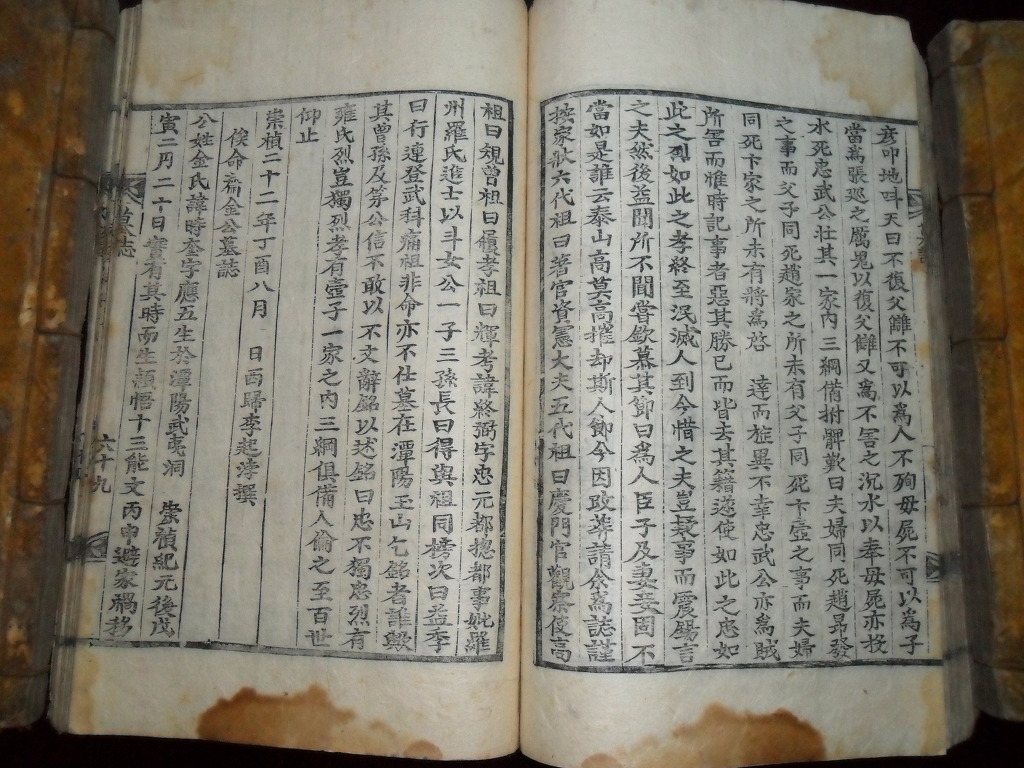 彥叩地呌天曰不復父讎不可以爲人不殉母屍不可以爲子
當爲張廵之厲鬼以復父讎又爲不害之沉水以奉母屍亦投
水死忠武公壯其一家內三綱偹拊髀歎曰夫婦同死趙昻發
之事而父子同死趙家之所未有父子同死卞壼之事而夫婦
同死卞家之所未有將爲啓達而㫌異不幸忠武公亦爲賊
所害而惟時記事者惡其勝已而皆去其籍遂使如此之忠如
此之烈如此之孝終至泯滅人到今惜之夫豈事而震言
之夫然後益聞所不聞甞欽慕其節曰爲人臣子及妻妾固不
當如是誰云泰山高莫高摧却斯人節今因改葬請余爲誌謹
按家狀六代祖曰著官資憲大夫五代祖曰慶門官觀察使高
祖曰䂓曾祖曰𡳐孝祖曰輝考諱終弼字忠元都摠都事妣羅
州羅氏進士以斗女公一子三孫長曰得與祖同榜次曰益季
曰行連登武科痛祖非命亦不仕墓在潭陽玉山乞銘者誰歟
其曾孫及苐公信不敢以不文辭銘以述銘曰忠不獨忠烈有
雍氏烈豈獨烈孝有壼子一家之內三綱俱偹人倫之至百世
仰止
崇禎二十二年丁酉八月 日西歸李起浡撰
俟命齋金公墓誌
公姓金氏諱時奎字應五生於潭陽武夷洞 崇禎紀元後戊
寅二月二十日實有其時而生頴悟十三能文丙申避家禍移
墓誌
六十九